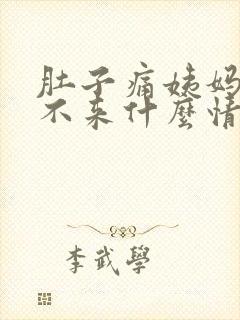 肚子痛姨妈
不来什麼情
李武學